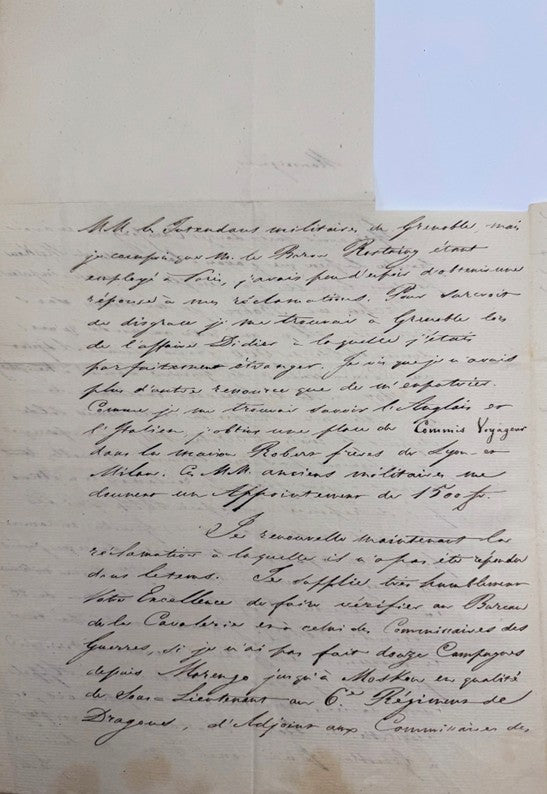 MM. les Intendans militaires de Grenoble, mais
je compris que M. le Baron Rostaing étant
employé à Paris, j'avais peu d'espoir d'obtenir une
réponse à mes réclamations. Pour surcroit
de disgrace je me trouvai à Grenoble lors
de l'affaire Didier à laquelle j'étais
parfaitement étranger. Je vis que je n'avais
plus d'autre ressource que de m'expatrier.
Comme je me trouvais savoir l'Anglais et
l'Italien j'obtins une place de Commis Voyageur
dans la maison Robert frères de Lyon et
Milan. Ces MM. anciens militaires me
donnent un Appointement de 1500 fr.
Je renouvelle maintenant la
réclamation à laquelle il n'a pas été répondu
dans le tems. Je supplie très humblement
Votre Excellence de faire vérifier au Bureau
de la Cavalerie et à celui des Commissaires des
Guerres, si je n'ai pas fait douze Campagnes
depuis Marengo jusqu'à Moskou en qualité
de Sous-Lieutenant au 6e Régiment de
Dragons, d'Adjoint aux Commissaires des